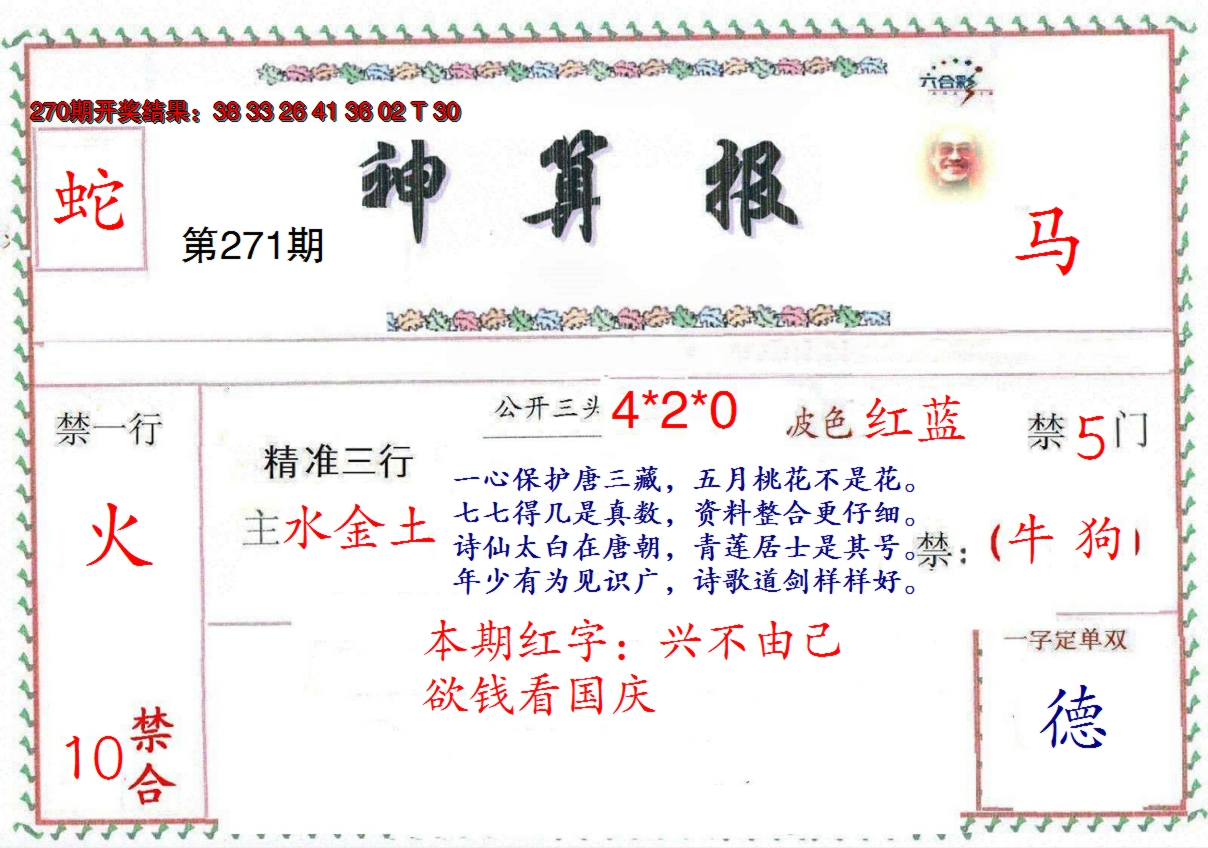 六合彩
270期开奖结果：38 33 26 41 36 02 T 30
神算报
蛇
第271期
马
禁一行
火
10禁合
公开三头 4*2*0
波色 红蓝
禁5门
精准三行
主水金土
一心保护唐三藏，五月桃花不是花。
七七得几是真数，资料整合更仔细。
诗仙太白在唐朝，青莲居士是其号。
年少有为见识广，诗歌道剑样样好。
禁：（牛 狗）
本期红字：兴不由己
欲钱看国庆
一字定单双
德